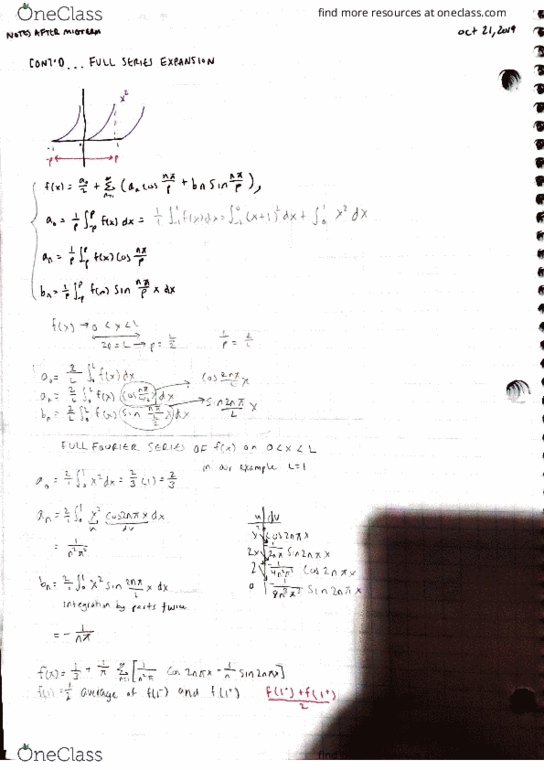 OneClass
find more resources at oneclass.com
NOTES AFTER MIDTERM
oct 21, 2019
CONT'D... FULL SERIES EXPANSION
x²
-1 0 1
-P P
f(x) = a₀/2 + Σ (aₙ cos nπ/p + bn sin nπ/p),
a₀ = 1/p ∫₋ₚᵖ f(x) dx = 1/1 ∫₋₁¹ f(x)dx = ∫₋₁⁰ (x+1)² dx + ∫₀¹ x² dx
aₙ = 1/p ∫₋ₚᵖ f(x) cos nπ/p
bₙ = 1/p ∫₋ₚᵖ f(x) sin nπ/p x dx
f(x) → 0 < x < L
2p = L → p = L/2 1/p = 2/L
a₀ = 2/L ∫₀ᴸ f(x) dx
cos 2nπ/L x
sin 2nπ/L x
FULL FOURIER SERIES OF f(x) on 0 < x < L
in our example L=1
a₀ = 2/1 ∫₀¹ x² dx = 2/3 (1) = 2/3
aₙ = 2/1 ∫₀¹ x² cos2nπx dx
u dv
u dv
x² cos2nπx
2x 1/2nπ sin2nπx
2 -1/4n²π² cos 2nπx
0 -1/8n³π³ sin 2nπx
= 1/n²π²
bₙ = 2/1 ∫₀¹ x² sin 2nπ/1 x dx
integration by parts twice
= - 1/nπ
f(x) = 1/3 + 1/π Σ [1/n²π cos 2nπx - 1/n sin 2nπx]
f(1) = 1/2 average of f(1⁻) and f(1⁺) f(1⁻) + f(1⁺)/2
OneClass